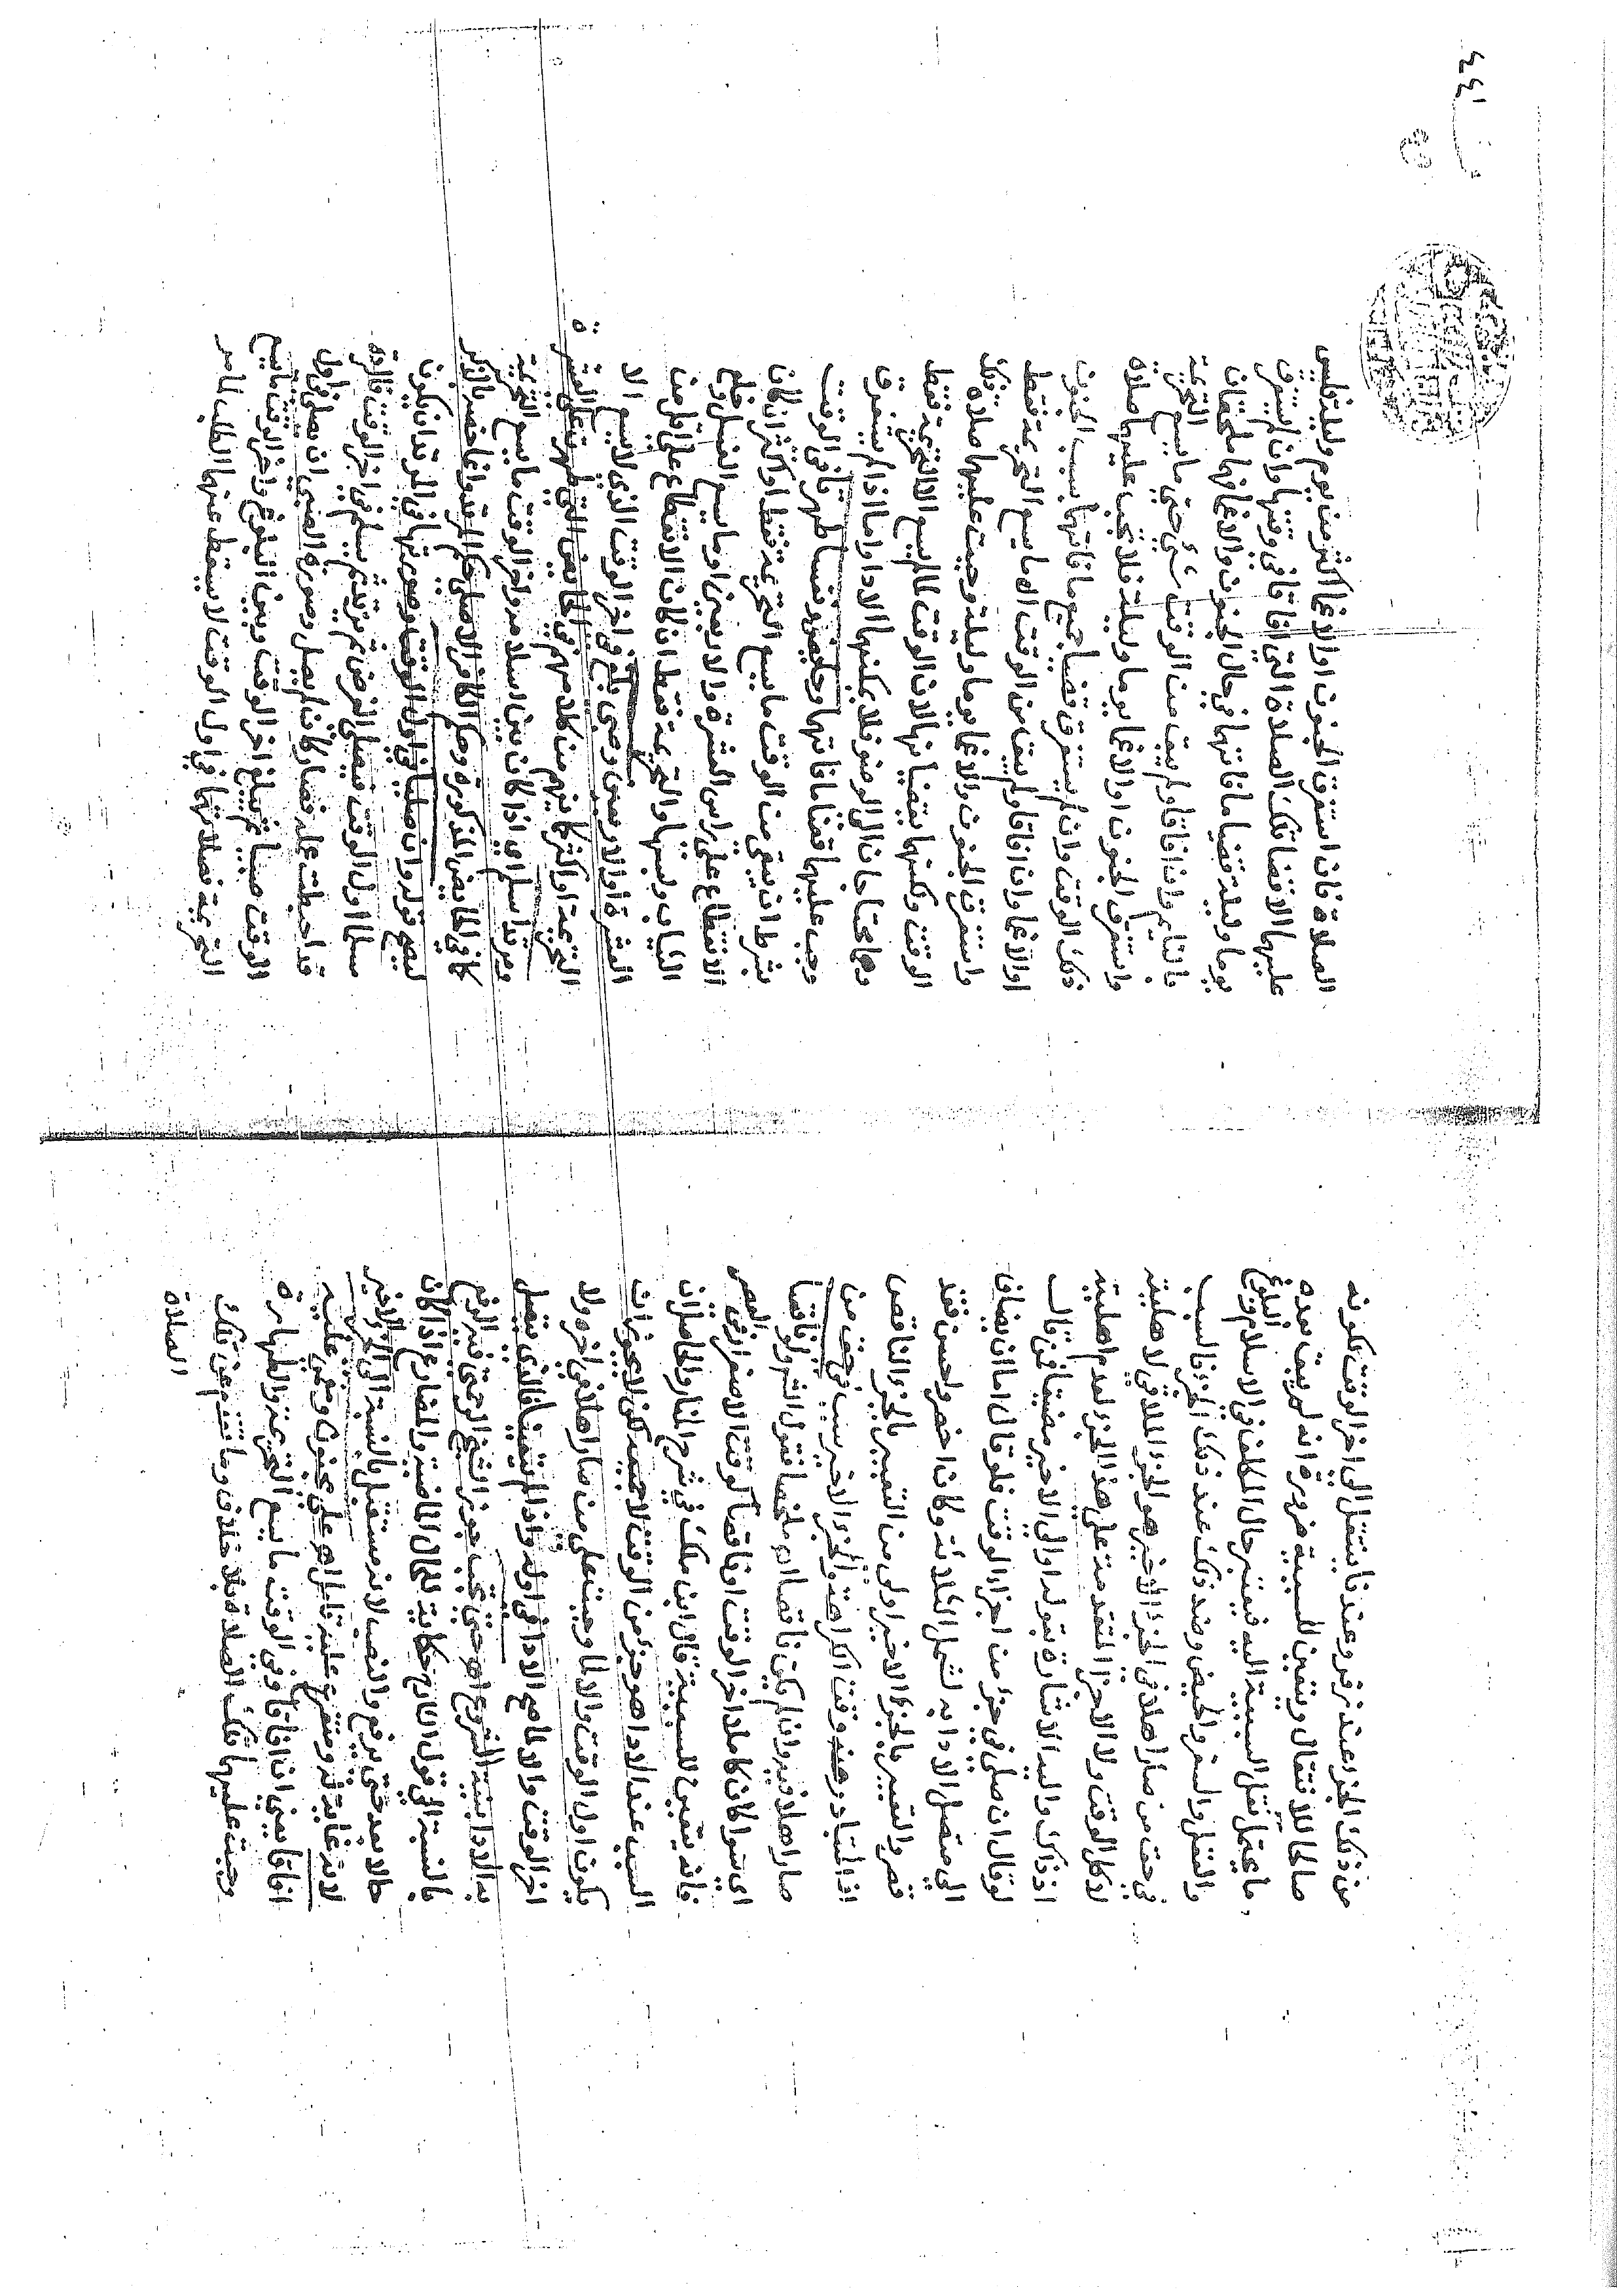 من ذلك الجزء عند زفر وعندنا ينتقل الى اخر الوقت لكونه
صالحا للانتقال ويتعين للسببية ضرورة انه لم يبق بعده
ما يحتمل نقل السببية اليه فيعتبر حال المكلف في الاسلام والبلوغ
والعقل والسفر والحيض وضد ذلك عند ذلك الجزء فالسبب
في حق من صار اهلا في الجزء الاخير هو الجزء الملاقي لاهليته
لا كل الوقت ولا الاجزاء المتقدمة على هذا الجزء لعدم اهليته
اذ ذاك واليه الاشارة بقوله او الى الاخير مضيقا فمن قال
لو قال ان صلى في جزء من اجزاء الوقت فلو قال اما ان يضاف
الى متصل الاداء به لشمل الكلام ولكان اخصر واحسن فقد
قصر والتعبير بالجزء الاخير اولى من التعبير بالجزء الناقص
اذ المتبادر منه وقت الكراهة والجزء الاخير سبب في حق من
صار اهلا فيه وان لم يكن ناقصا اه ملخصا فقول الشم ولو ناقصا
اي سواء كان كاملا اخر الوقت او ناقصا كوقت الاصفرار في العصر
فانه يتعين للسببية قال ابن ملك في شرح المنار والحاصل ان
السبب عند الاداء هو جزء من الوقت لا بعينه لكن لا يجوز ان
يكون اول الوقت والا لما وجبت على من صار اهلا في اخره ولا
اخر الوقت والا لما صح الاداء في اوله واذا لم يتعينا فالذي يتصل
به الاداء يعني الشروع اه حتى يجب جوز الشيخ الرحمتي فيه الرفع
بالنسبة الى قول الشارح حكاية للحال الماضية والمضارع اذا كان
حالا بعد حتى يرفع والنصب لانه مستقبل بالنسبة الى الجزء الاخير
لانه غاية له ومتفرع عليه تامل اه على مجنون ومغمى عليه
افاقا يعني ان افاقا وفي الوقت ما يسع التحريمة والطهارة
وجبت عليهما تلك الصلاة بلا خلاف وما تقدم عن تلك
الصلاة
الصلاة فان استغرق الجنون او الاغما اكثر من يوم وليلة فليس
عليهما الا قضا تلك الصلاة التي افاقا في وقتها وان لم يستغرق
يوما وليلة قضيا ما فاتهما في حال الجنون والاغما فهما ملحقان
بالنائم وان افاقا ولم يبق من الوقت شيء حتى ما يسع التحريمة
واستغرق الجنون او الاغما يوما وليلة فلا تجب عليهما صلاة
ذلك الوقت وان لم يستغرق قضيا جميع ما فاتهما بسبب الجنون
او الاغما وان افاقا ولم يبق من الوقت الا ما يسع التحريمة فقط
واستغرق الجنون والاغما يوما وليلة وجبت عليهما صلاة ذلك
الوقت ولكنهما يقضيانها لان الوقت لما لم يسع الا التحريمة فقط
وهما محتاجان الى الوضو فلا يمكنهما الادا واما اذا لم يستغرق
وجب عليهما قضا ما فاتهما وحايض ونفسا طهرتا في الوقت
بشرط ان يبقى من الوقت ما يسع التحريمة فقط او اكثر ان كان
الانقطاع على راس العشرة والاربعين او ما يسع الغسل وخلع
الثياب ولبسها والتحريمة فقط ان كان الانقطاع على اقل من
العشرة او الاربعين وصبي بلغ في اخر الوقت الذي لا يسع الا
التحريمة او اكثر كما يفهم من كلامهم في الحايض التي طهرت على العشرة
ومرتد اسلم اي اذا كان بين اسلامه واخر الوقت ما يسع التحريمة
كما في الحايض المذكورة وحكم الكافر الاصلي حكم المرتد وانما خصه بالذكر
ليصح قوله وان صليا في اول الوقت وصورتها في المرتد ان يكون
مسلما اول الوقت فيصلي الفرض ثم يرتد ثم يسلم في اخر الوقت فالردة
قد احبطت عمله فصار كان لم يصل وصورة الصبي ان يصلي في اول
الوقت صبيا ثم يبلغ اخر الوقت وبين البلوغ واخر الوقت ما يسع
التحريمة فصلاتهما في اول الوقت لا يسقط عنهما الطلب لما مر